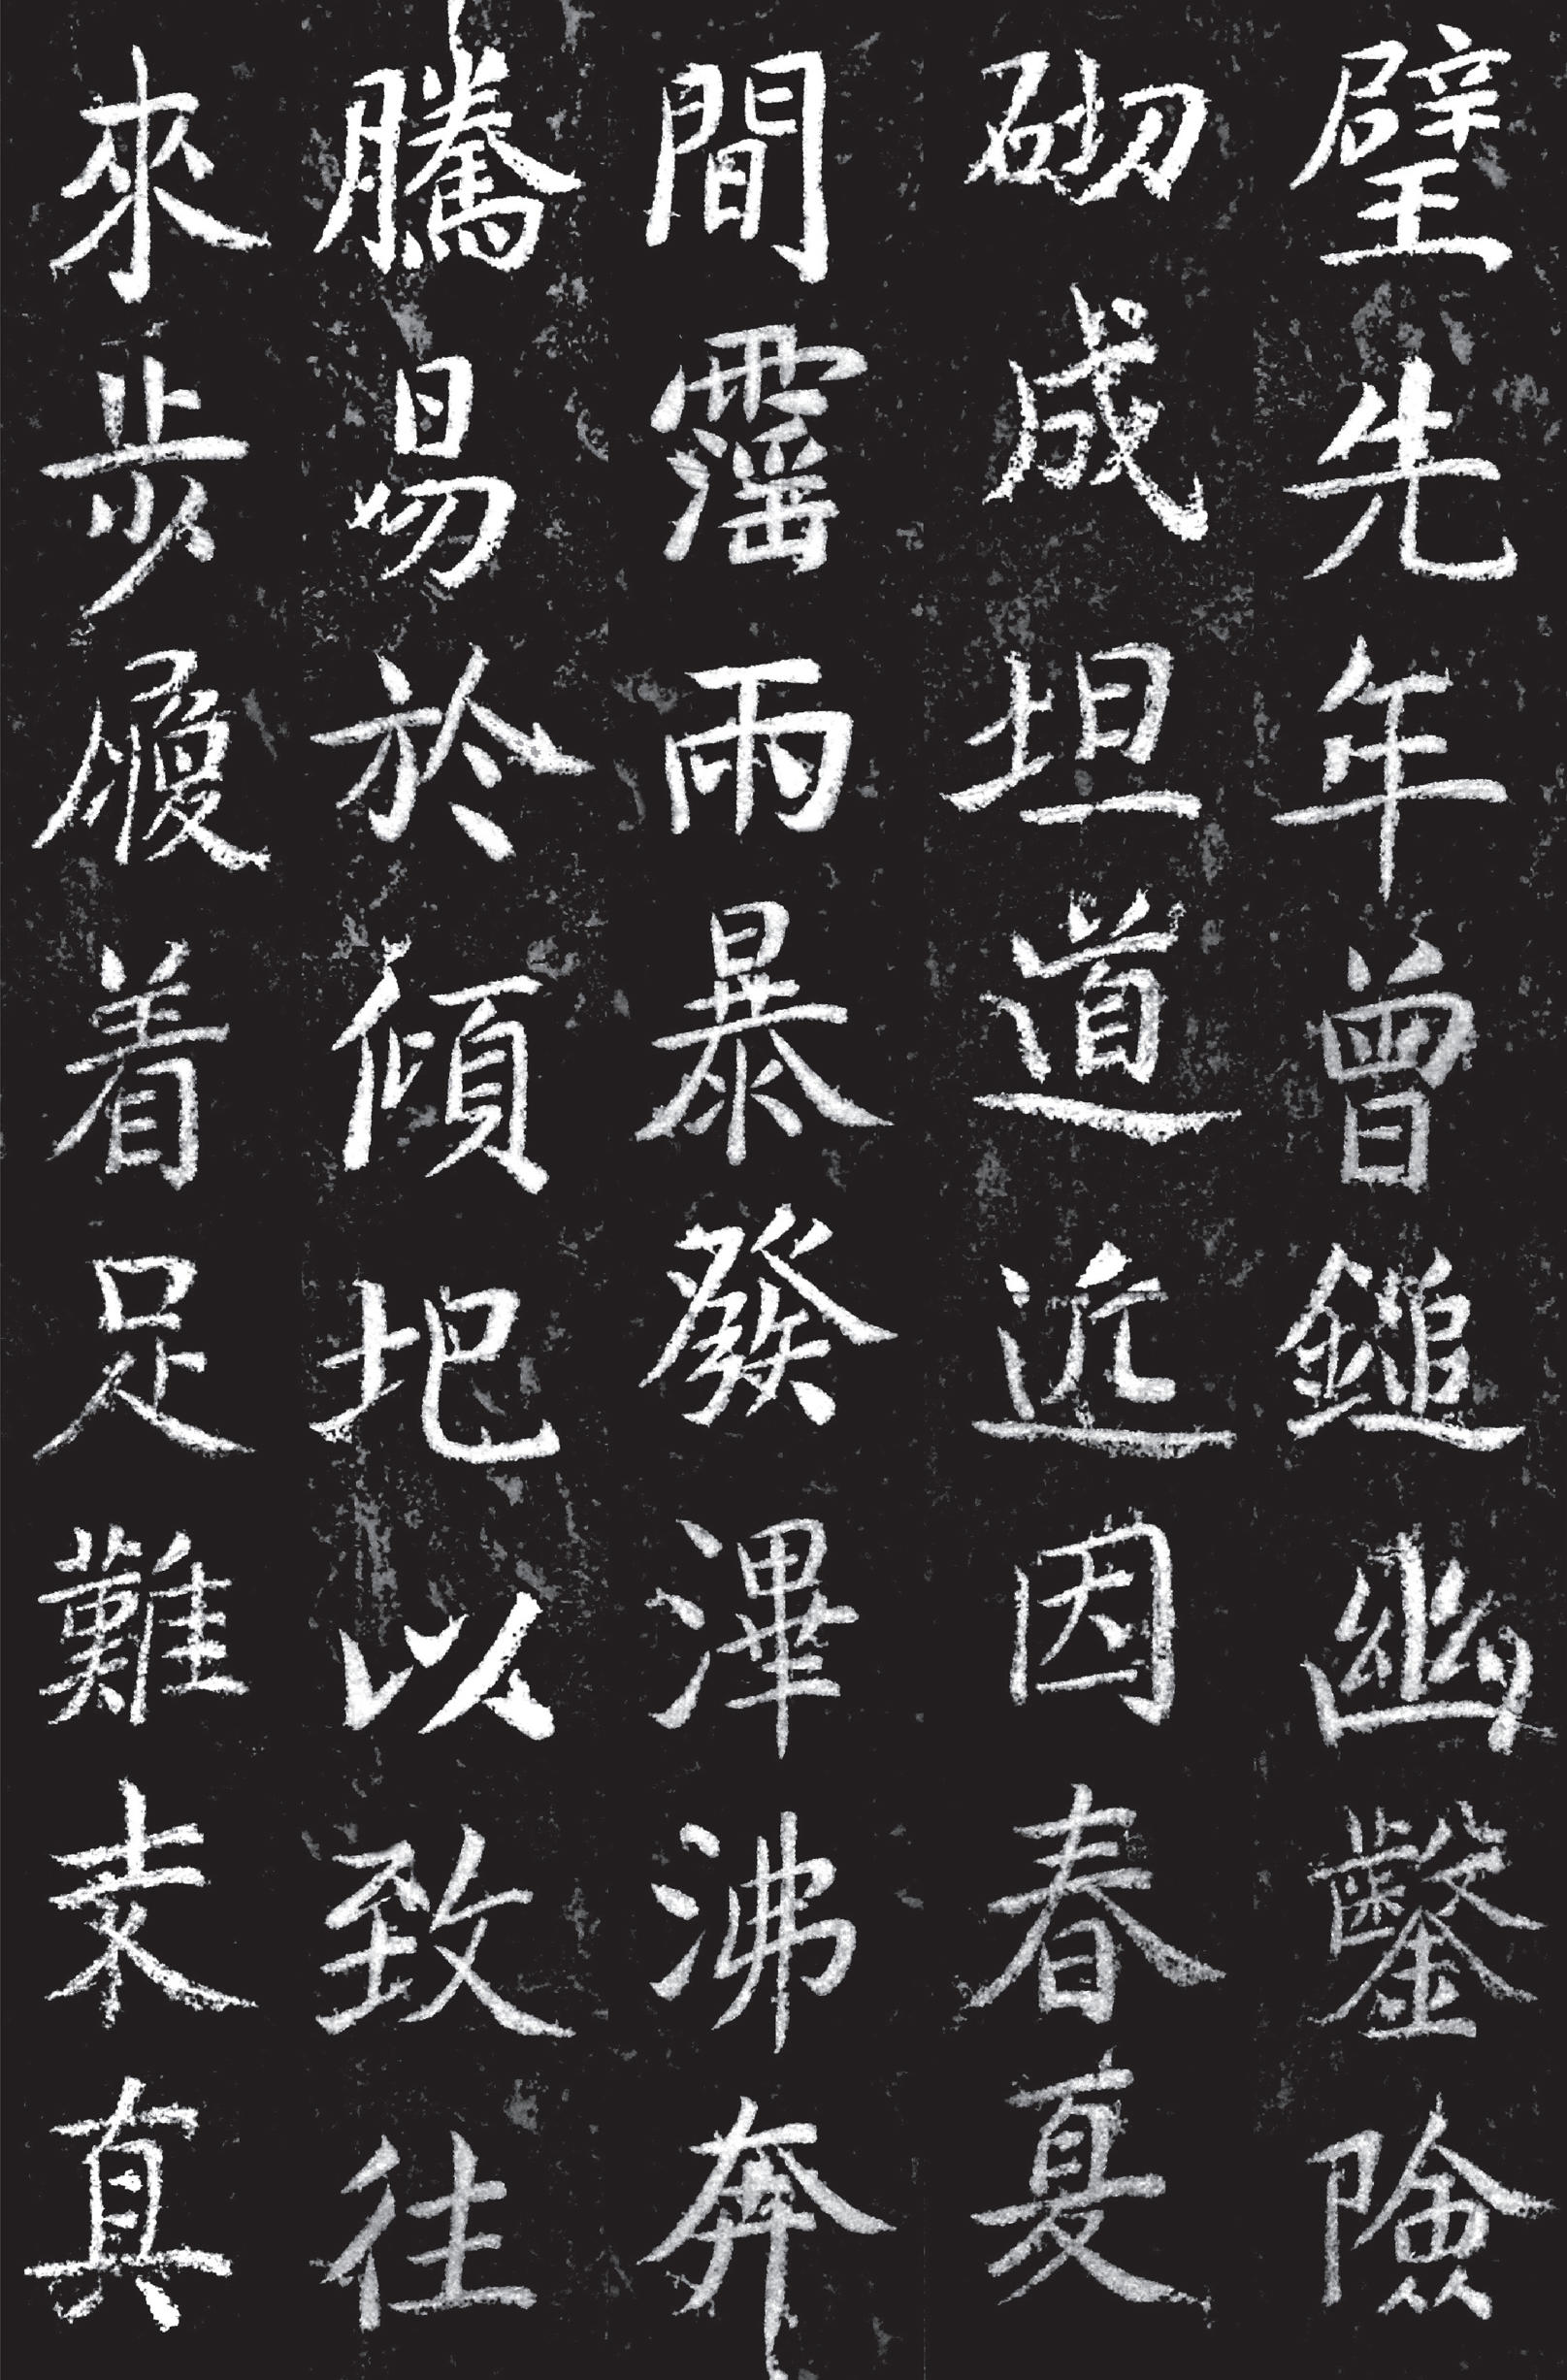 璧先年曾鎚幽鑿險
砌成坦道近因春夏
間霪雨暴發滭沸奔
騰易於傾圮以致往
來步履着足難素真